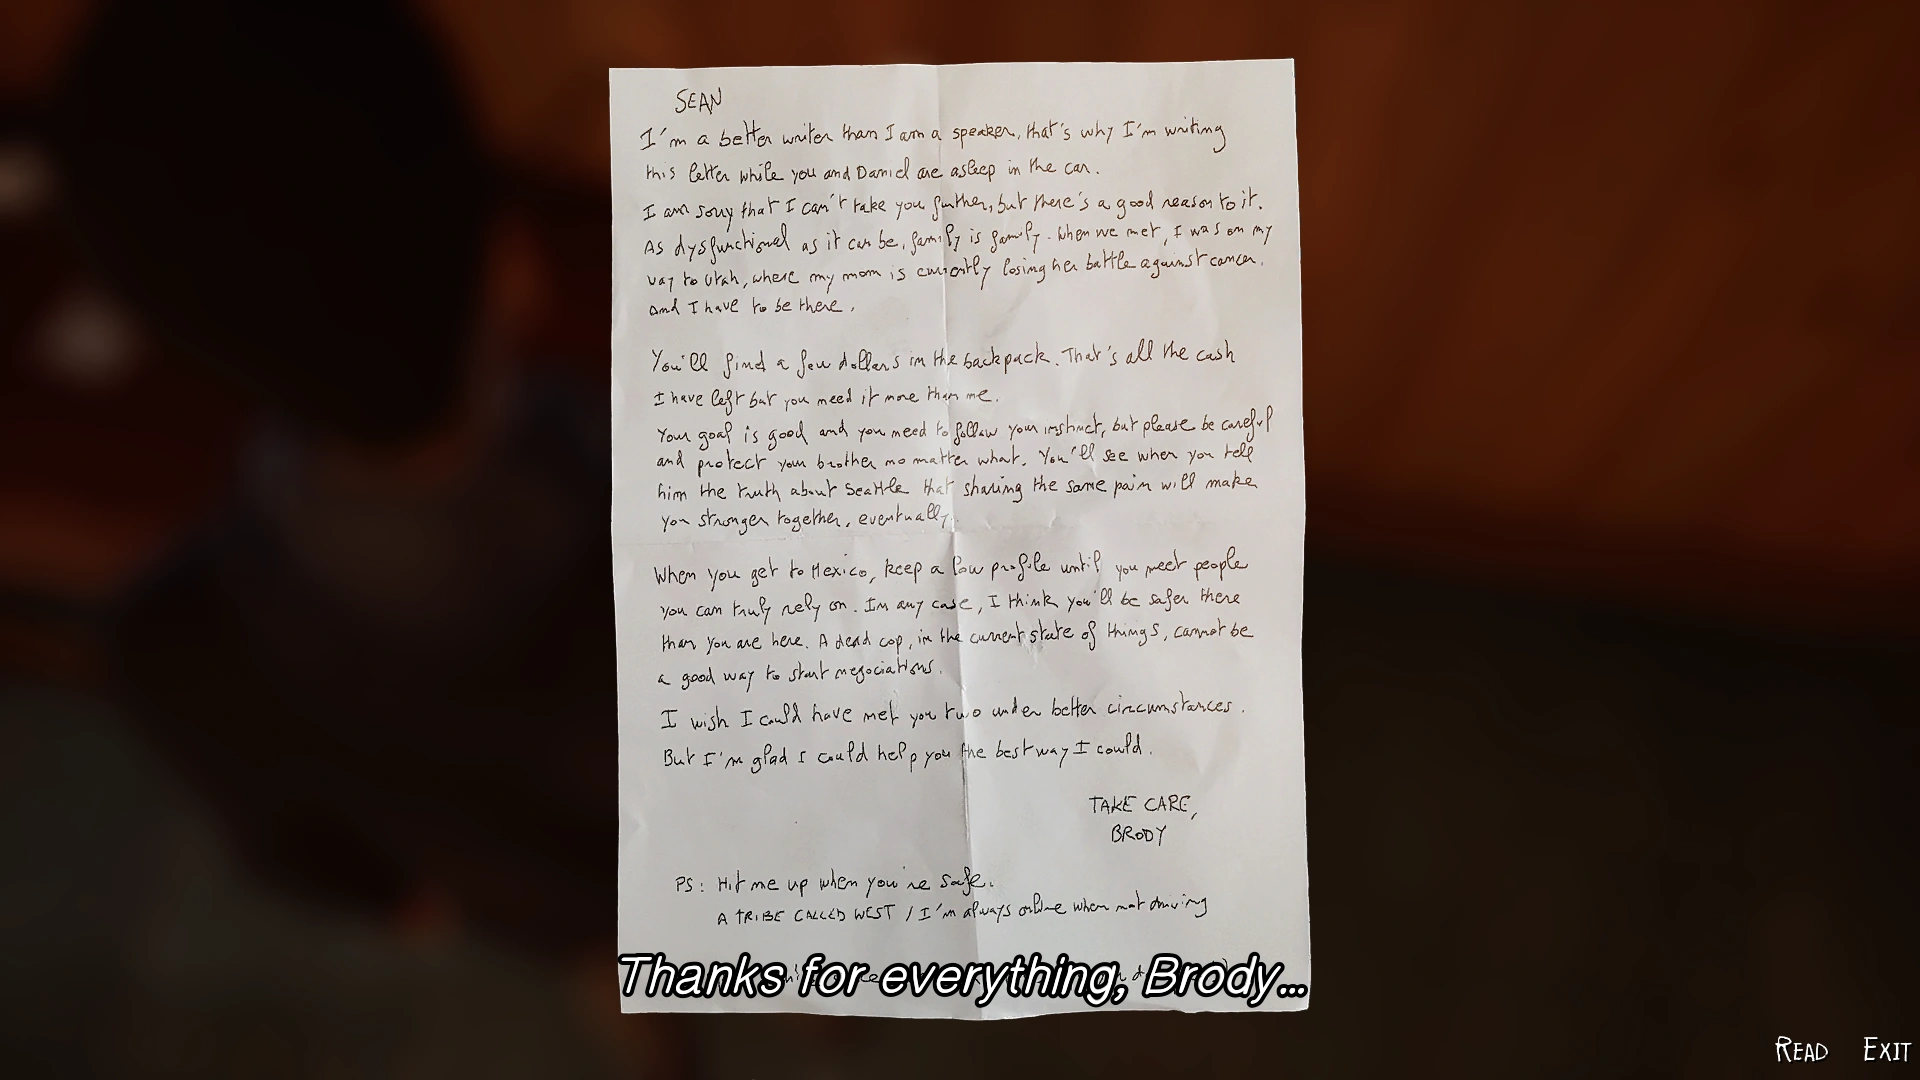 SEAN
I'm a better writer than I am a speaker, that's why I'm writing
this letter while you and Daniel are asleep in the car.
I am sorry that I can't take you further, but there's a good reason to it.
As dysfunctional as it can be, family is family. When we met, I was on my
way to Utah, where my mom is currently losing her battle against cancer.
and I have to be there.
You'll find a few dollars in the backpack. That's all the cash
I have left but you need it more than me.
Your goal is good and you need to follow your instinct, but please be careful
and protect your brother no matter what. You'll see when you tell
him the truth about Seattle that sharing the same pain will make
you stronger together, eventually.
When you get to Mexico, keep a low profile until you meet people
you can truly rely on. In any case, I think you'll be safer there
than you are here. A dead cop, in the current state of things, cannot be
a good way to start negociations.
I wish I could have met you two under better circumstances.
But I'm glad I could help you the best way I could.
TAKE CARE,
BRODY
PS: Hit me up when you're safe.
A TRIBE CALLED WEST / I'm always online when not driving
Thanks for everything, Brody...
READ EXIT